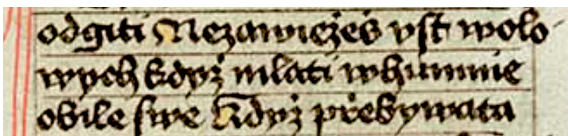 odgiti Nezawiežes vst wolo
wych když mlati whumnie
obile swe Když přebywata